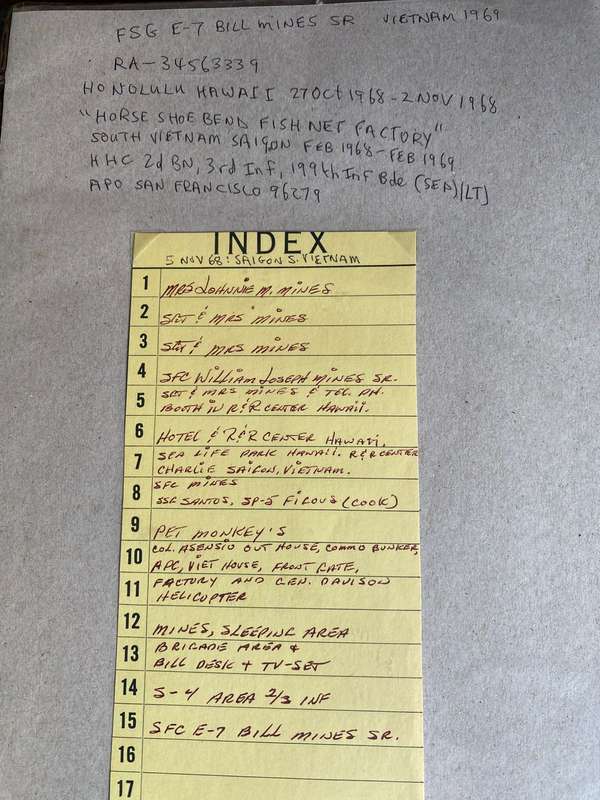 FSG E-7 BILL MINES SR VIETNAM 1969
RA-34563339
HONOLULU HAWAII 27 Oct 1968 - 2 NOV 1968
"HORSE SHOE BEND FISH NET FACTORY"
SOUTH VIETNAM SAIGON FEB 1968 - FEB 1969
HHC 2d BN, 3rd Inf, 199th Inf Bde (SEP)(LT)
APO SAN FRANCISCO 96279
INDEX
5 NOV 68: SAIGON S. VIETNAM
1 MRS JOHNNIE M. MINES
2 SGT & MRS MINES
3 SGT & MRS MINES
4 SFC WILLIAM JOSEPH MINES SR.
5 SGT & MRS MINES & TEL. PH.
BOOTH IN R&R CENTER HAWAII.
6 HOTEL & R&R CENTER HAWAII.
7 SEA LIFE PARK HAWAII. R&R CENTER
CHARLIE SAIGON, VIETNAM.
8 SFC MINES
SSG SANTOS, SP-5 FICOUS (COOK)
9 PET MONKEY'S
10 COL. ASENSIO OUT HOUSE, COMMO BUNKER,
APC, VIET HOUSE, FRONT GATE,
11 FACTORY AND GEN. DAVISON
HELICOPTER
12 MINES, SLEEPING AREA
13 BRIGADE AREA &
BILL DESK + TV-SET
14 S-4 AREA 2/3 INF
15 SFC E-7 BILL MINES SR.
16
17